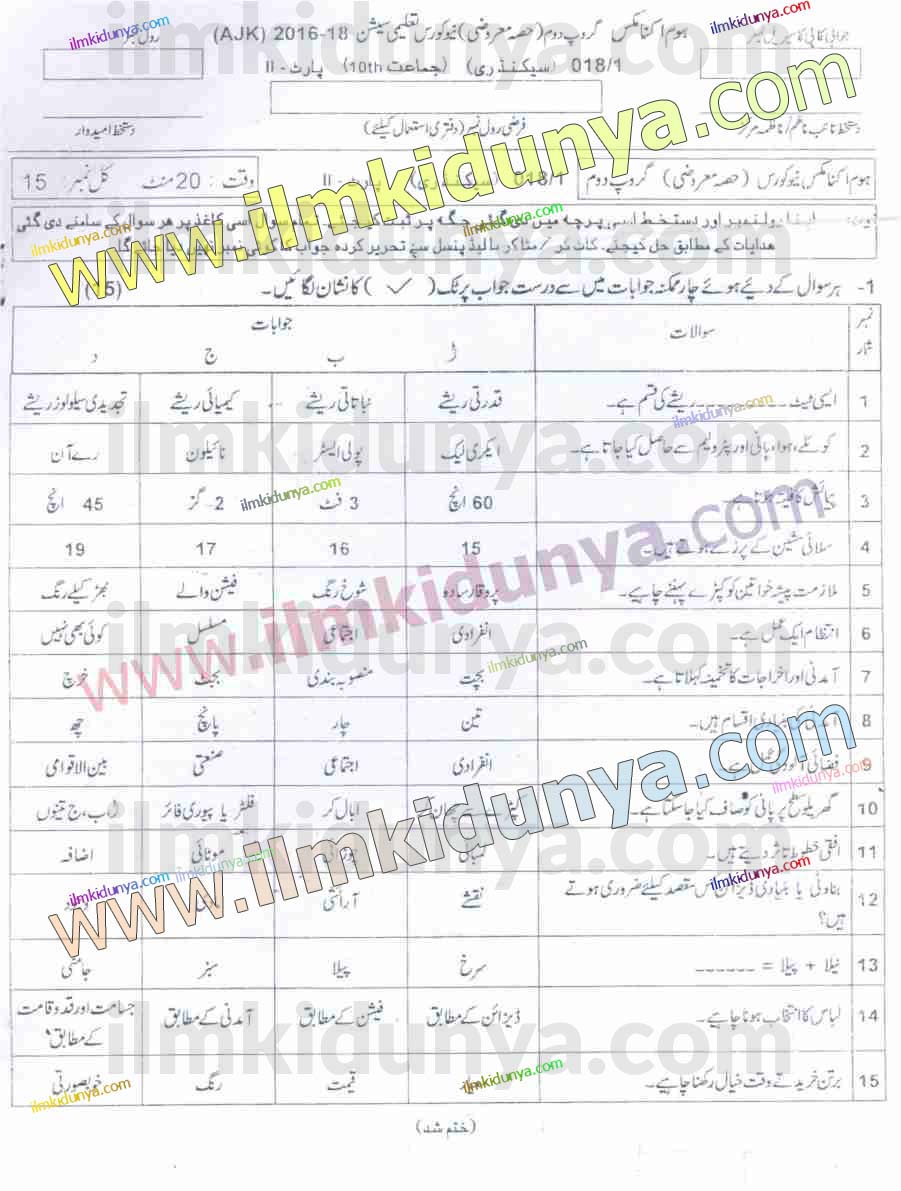 جوابی کاپی کا سیریل نمبر
ہوم اکنامکس گروپ دوم (حصہ معروضی) نیو کورس تعلیمی سیشن 18-2016 (AJK)
رول نمبر
018/1 (سیکنڈری) (جماعت 10th) پارٹ - II
دستخط نائب ناظم / ناظمہ مرکز
فرضی رول نمبر (دفتری استعمال کیلئے)
دستخط امیدوار
ہوم اکنامکس نیو کورس (حصہ معروضی) گروپ دوم 018/1 (سیکنڈری) پارٹ - II وقت : 20 منٹ کل نمبر : 15
اپنا رولنمبر اور دستخط اسی پرچہ میں دی گئی جگہ پر ثبت کیجئے۔ تمام سوال اسی کاغذ پر ھر سوال کے سامنے دی گئی
ھدایات کے مطابق حل کیجئے۔ کاٹ کر / مٹا کر یا لیڈ پنسل سے تحریر کردہ جواب کا کوئی نمبر نہیں دیا جائے گا۔
1- ہر سوال کے دیئے ہوئے چار ممکنہ جوابات میں سے درست جواب پر ٹک ( ✓ ) کا نشان لگائیں۔ (15)
نمبر شمار سوالات جوابات
ا ب ج د
1 ایسی ٹیٹ ---------- ریشے کی قسم ہے۔ قدرتی ریشے نباتاتی ریشے کیمیائی ریشے تجدیدی سیلولوز ریشے
2 کوئلے، ہوا، پانی اور پٹرولیم سے حاصل کیا جاتا ہے۔ ایکری لیک پولی ایسٹر نائیلون رے آن
3 پیمائش کا فیتہ ہوتا ہے۔ 60 انچ 3 فٹ 2- گز 45 انچ
4 سلائی مشین کے پرزے ہوتے ہیں۔ 15 16 17 19
5 ملازمت پیشہ خواتین کو کپڑے پہننے چاہیے۔ پروقار سادہ شوخ رنگ فیشن والے بھڑکیلے رنگ
6 انتظام ایک عمل ہے۔ انفرادی اجتماعی مسلسل کوئی بھی نہیں
7 آمدنی اور اخراجات کا تخمینہ کہلاتا ہے۔ بچت منصوبہ بندی بجٹ خرچ
8 آمدنی کی بنیادی اقسام ہیں۔ تین چار پانچ چھ
9 فضائی آلودگی عمل ہے۔ انفرادی اجتماعی صنعتی بین الاقوامی
10 گھریلو سطح پر پانی کو صاف کیا جا سکتا ہے۔ کپڑے سے چھان کر ابال کر فلٹر یا پیوری فائر ا، ب، ج تینوں
11 افقی خطوط تاثر دیتے ہیں۔ لمبائی چوڑائی موٹائی اضافہ
12 بناوٹی یا بنیادی ڈیزائن کس مقصد کیلئے ضروری ہوتے ہیں؟ نقشے آرائشی
13 نیلا + پیلا = ------ سرخ پیلا سبز جامنی
14 لباس کا انتخاب ہونا چاہیے۔ ڈیزائن کے مطابق فیشن کے مطابق آمدنی کے مطابق جسامت اور قد و قامت کے مطابق
15 برتن خریدتے وقت خیال رکھنا چاہیے۔ قیمت رنگ خوبصورتی
(ختم شد)
ilmkidunya.com
www.ilmkidunya.com